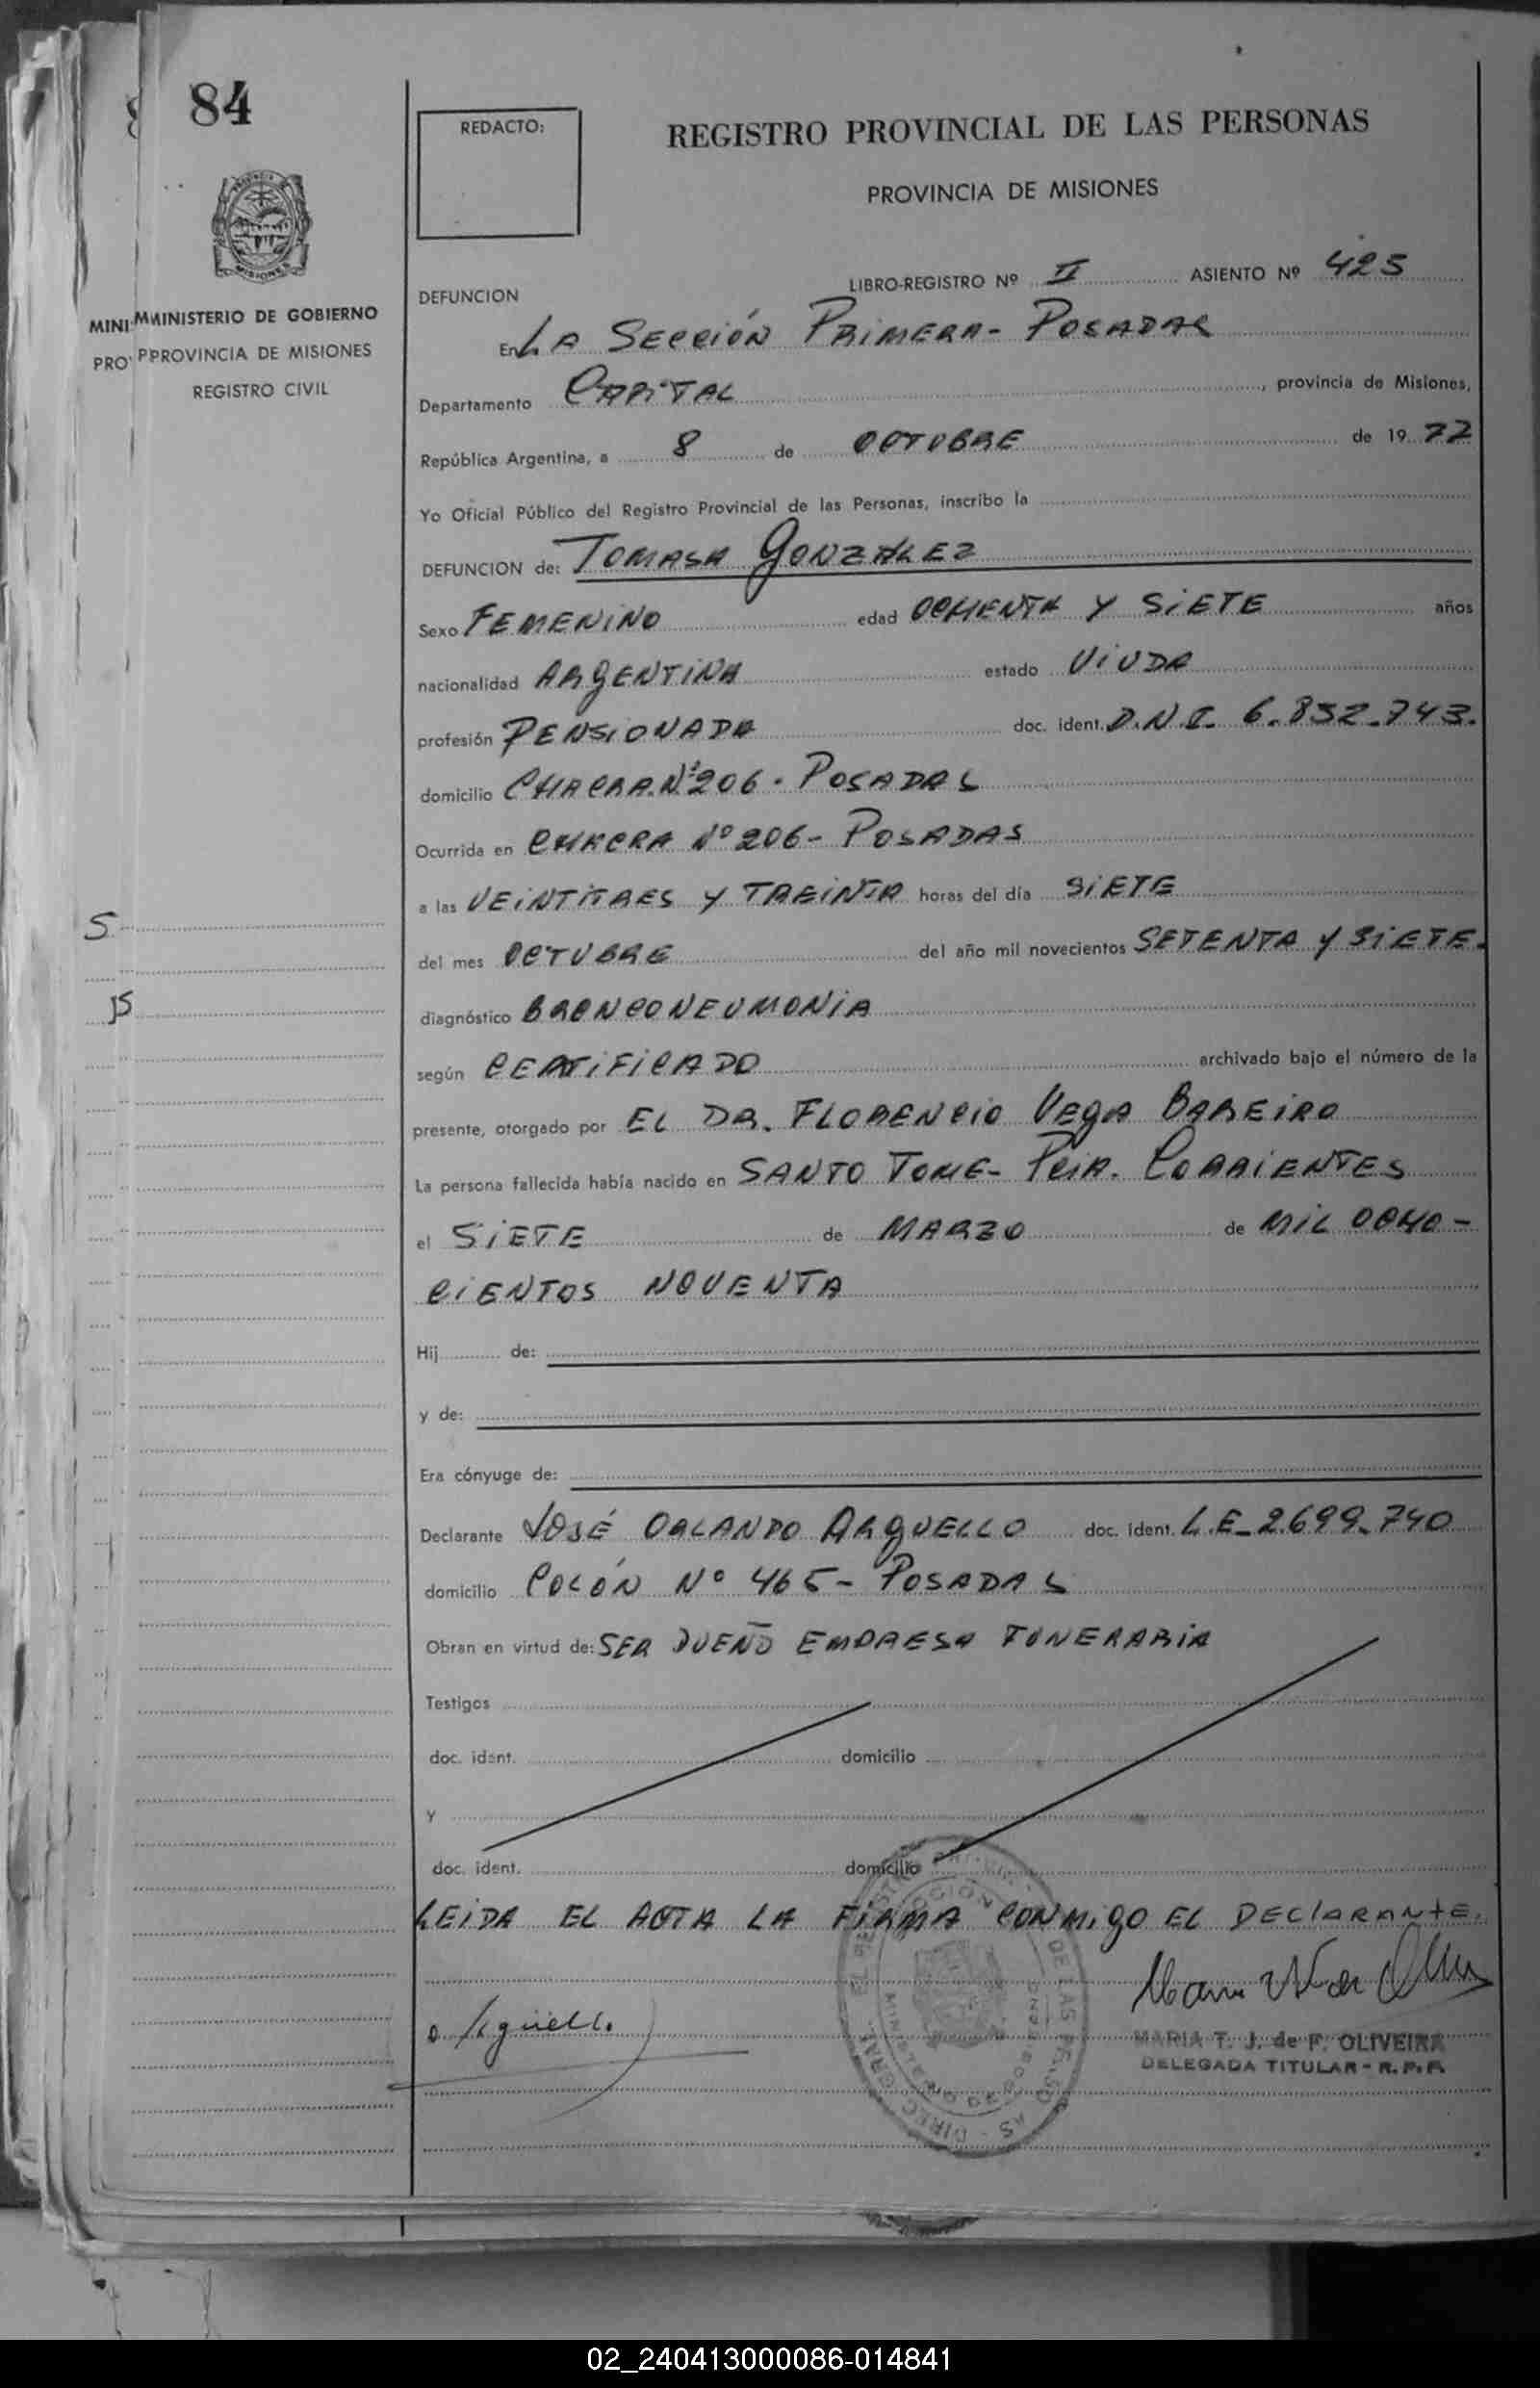 84
REDACTO:
REGISTRO PROVINCIAL DE LAS PERSONAS
PROVINCIA DE MISIONES
MISIONES
LIBRO-REGISTRO Nº II ASIENTO Nº 425
DEFUNCION
MINI MINISTERIO DE GOBIERNO
PRO PROVINCIA DE MISIONES
REGISTRO CIVIL
En LA SECCIÓN PRIMERA - POSADAS
Departamento CAPITAL, provincia de Misiones,
República Argentina, a 8 de OCTUBRE de 19 77
Yo Oficial Público del Registro Provincial de las Personas, inscribo la
DEFUNCION de: TOMASA GONZALEZ
Sexo FEMENINO edad OCHENTA Y SIETE años
nacionalidad ARGENTINA estado VIUDA
profesión PENSIONADA doc. ident. D.N.I. 6.832.743.
domicilio CHACRA Nº 206 - POSADAS
Ocurrida en CHACRA Nº 206 - POSADAS
a las VEINTITRES Y TREINTA horas del día SIETE
del mes OCTUBRE del año mil novecientos SETENTA Y SIETE.
diagnóstico BRONCONEUMONIA
según CERTIFICADO archivado bajo el número de la
presente, otorgado por EL DR. FLORENCIO VEGA BAREIRO
La persona fallecida había nacido en SANTO TOME - PCIA. CORRIENTES
el SIETE de MARZO de MIL OCHO-
CIENTOS NOVENTA
Hij de:
y de:
Era cónyuge de:
Declarante JOSÉ ORLANDO ARGUELLO doc. ident. L.E. 2.699.740
domicilio COLÓN Nº 465 - POSADAS
Obran en virtud de: SER DUEÑO EMPRESA FUNERARIA
Testigos
doc. ident. domicilio
y
doc. ident. domicilio
LEIDA EL ACTA LA FIRMA CONMIGO EL DECLARANTE.
MARIA T. J. de F. OLIVEIRA
DELEGADA TITULAR - R.P.P.
02_240413000086-014841